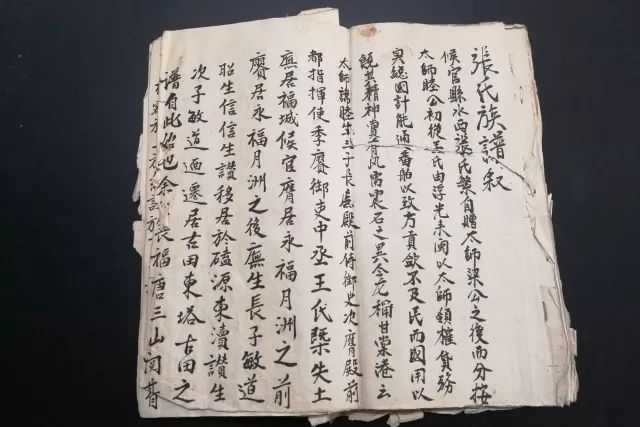 張氏族譜叙
候官縣水西張氏肇自贈太師梁公之後而分按
太師睦公初從王氏由浮光来闽以太師領榷貨務
興總國計能涌番舶以致方貢歛不及民而國用以
饒其精神曽有風雷震石之異今尤稱甘棠港云
太師諱睦生三子長廡殿前侍御史次膺殿前
都指揮使季賡御吏中丞王氏檗失土
廡居福城候官膺居永福月洲之前
賡居永福月洲之後廡生長子敏道
昭生信信生讚移居於磕源東瀆讃生
次子敏道迊遷居古田東塔古田之
譜自此始也余長福唐三山阅